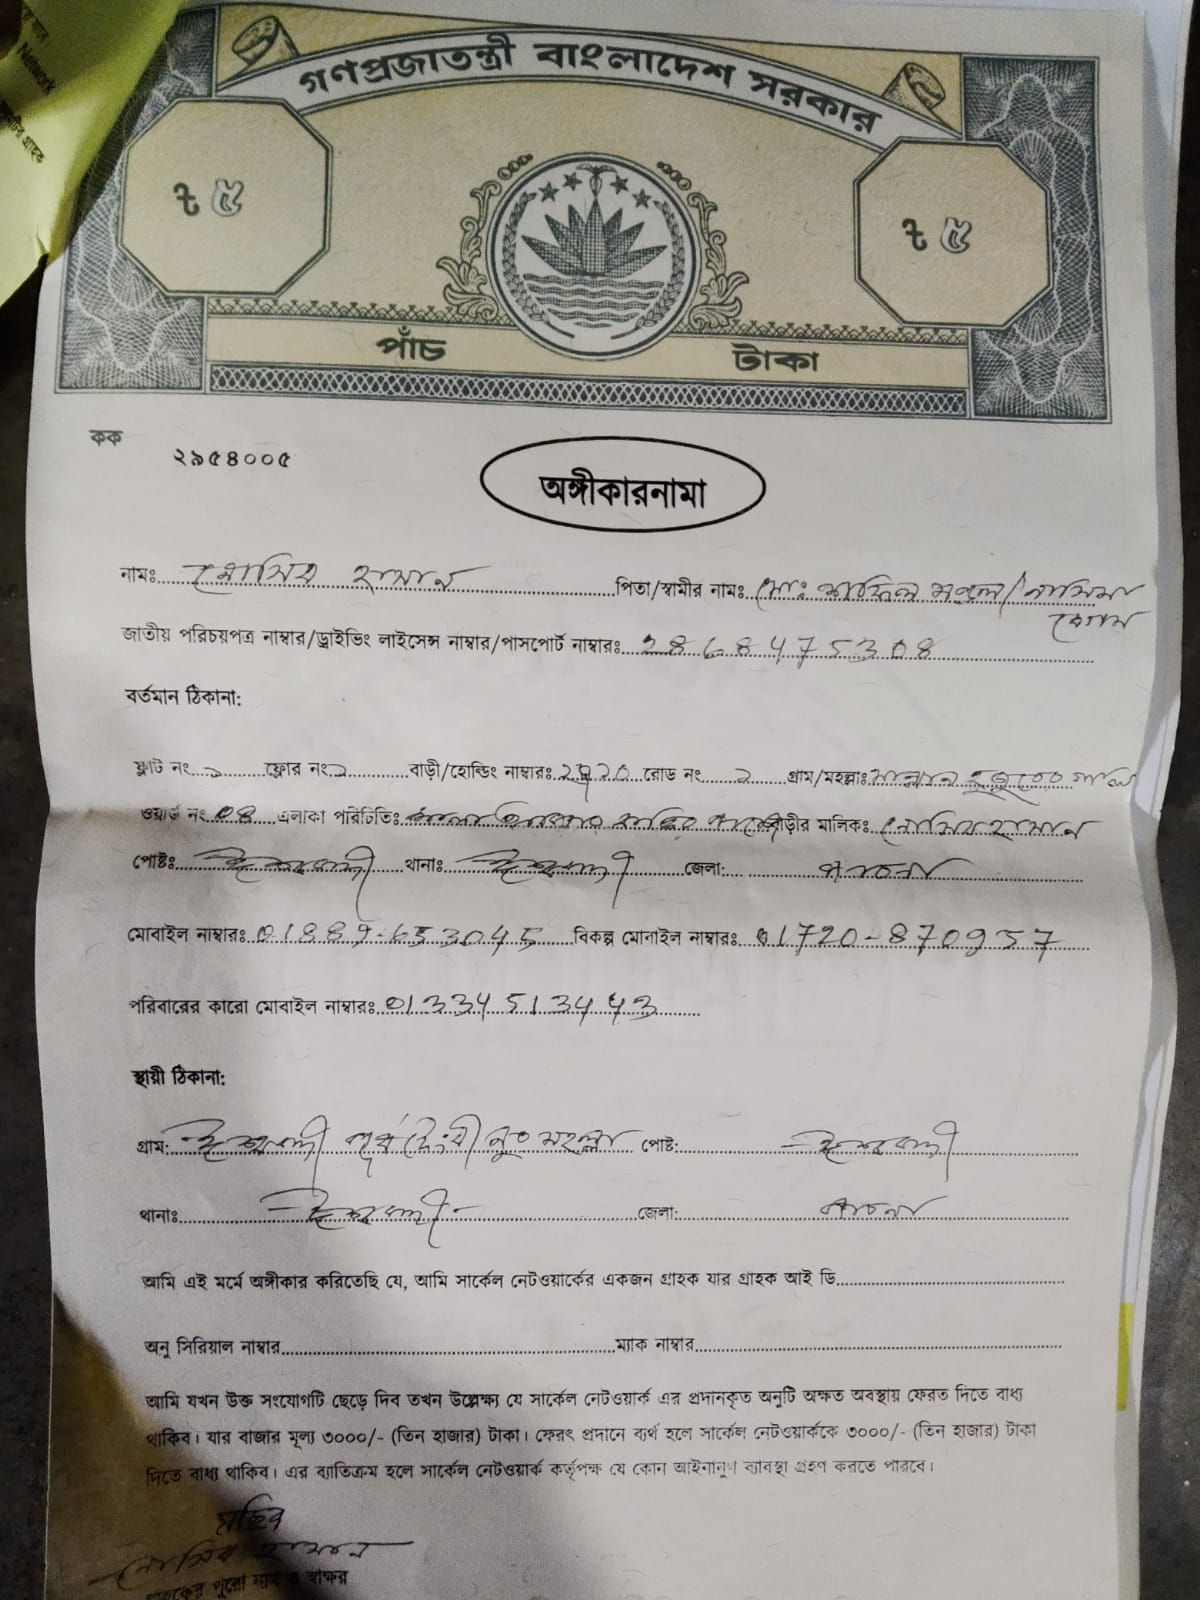 Network
গণপ্রজাতন্ত্রী বাংলাদেশ সরকার
৳ ৫ ৳ ৫
পাঁচ টাকা
কক
২৯৫৪০০৫
অঙ্গীকারনামা
নামঃ হাসান পিতা/স্বামীর নামঃ মোঃ নাসিমা
বেগম
জাতীয় পরিচয়পত্র নাম্বার/ড্রাইভিং লাইসেন্স নাম্বার/পাসপোর্ট নাম্বারঃ 2868475308
বর্তমান ঠিকানা:
ফ্লাট নং ফ্লোর নং বাড়ী/হোল্ডিং নাম্বারঃ রোড নং গ্রাম/মহল্লাঃ
ওয়ার্ড নং 08 এলাকা পরিচিতিঃ বাড়ীর মালিকঃ হাসান
পোষ্টঃ ঈশ্বরদী থানাঃ ঈশ্বরদী জেলা: পাবনা
মোবাইল নাম্বারঃ 01889-653045 বিকল্প মোবাইল নাম্বারঃ 01720-870957
পরিবারের কারো মোবাইল নাম্বারঃ 01334513443
স্থায়ী ঠিকানা:
গ্রাম: ঈশ্বরদী মহল্লা পোষ্ট: ঈশ্বরদী
থানাঃ ঈশ্বরদী জেলা: পাবনা
আমি এই মর্মে অঙ্গীকার করিতেছি যে, আমি সার্কেল নেটওয়ার্কের একজন গ্রাহক যার গ্রাহক আই ডি
অনু সিরিয়াল নাম্বার ম্যাক নাম্বার
আমি যখন উক্ত সংযোগটি ছেড়ে দিব তখন উল্লেক্ষ্য যে সার্কেল নেটওয়ার্ক এর প্রদানকৃত অনুটি অক্ষত অবস্থায় ফেরত দিতে বাধ্য
থাকিব। যার বাজার মূল্য ৩০০০/- (তিন হাজার) টাকা। ফেরৎ প্রদানে ব্যর্থ হলে সার্কেল নেটওয়ার্ককে ৩০০০/- (তিন হাজার) টাকা
দিতে বাধ্য থাকিব। এর ব্যতিক্রম হলে সার্কেল নেটওয়ার্ক কর্তৃপক্ষ যে কোন আইনানুগ ব্যাবস্থা গ্রহণ করতে পারবে।
হাসান
গ্রাহকের পুরো নাম ও স্বাক্ষর